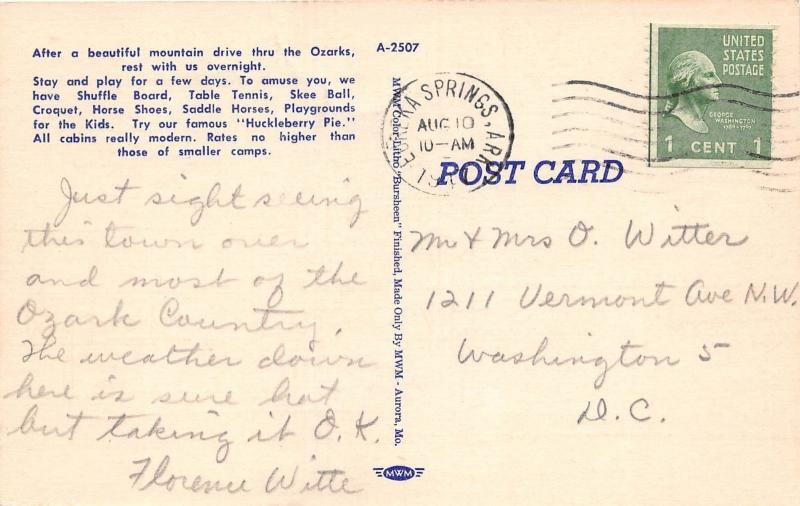 After a beautiful mountain drive thru the Ozarks,
rest with us overnight.
Stay and play for a few days. To amuse you, we
have Shuffle Board, Table Tennis, Skee Ball,
Croquet, Horse Shoes, Saddle Horses, Playgrounds
for the Kids. Try our famous "Huckleberry Pie."
All cabins really modern. Rates no higher than
those of smaller camps.
Just sight seeing
this town over
and most of the
Ozark Country.
The weather down
here is sure hot
but taking it O.K.
Florence Witte
A-2507
MWM Color-Litho "Bursheen" Finished, Made Only By MWM - Aurora, Mo.
MWM
EUREKA SPRINGS, ARK.
AUG 10
10-AM
UNITED
STATES
POSTAGE
GEORGE
WASHINGTON
1789-1797
1 CENT 1
POST CARD
Mr & Mrs O. Witter
1211 Vermont Ave N.W.
Washington 5
D.C.